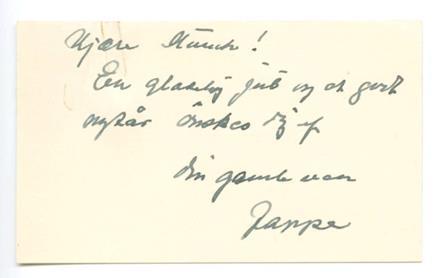 Kjære Munch!
En gladelig jul og et godt
nytår ønskes dig af
din gamle ven
Jappe